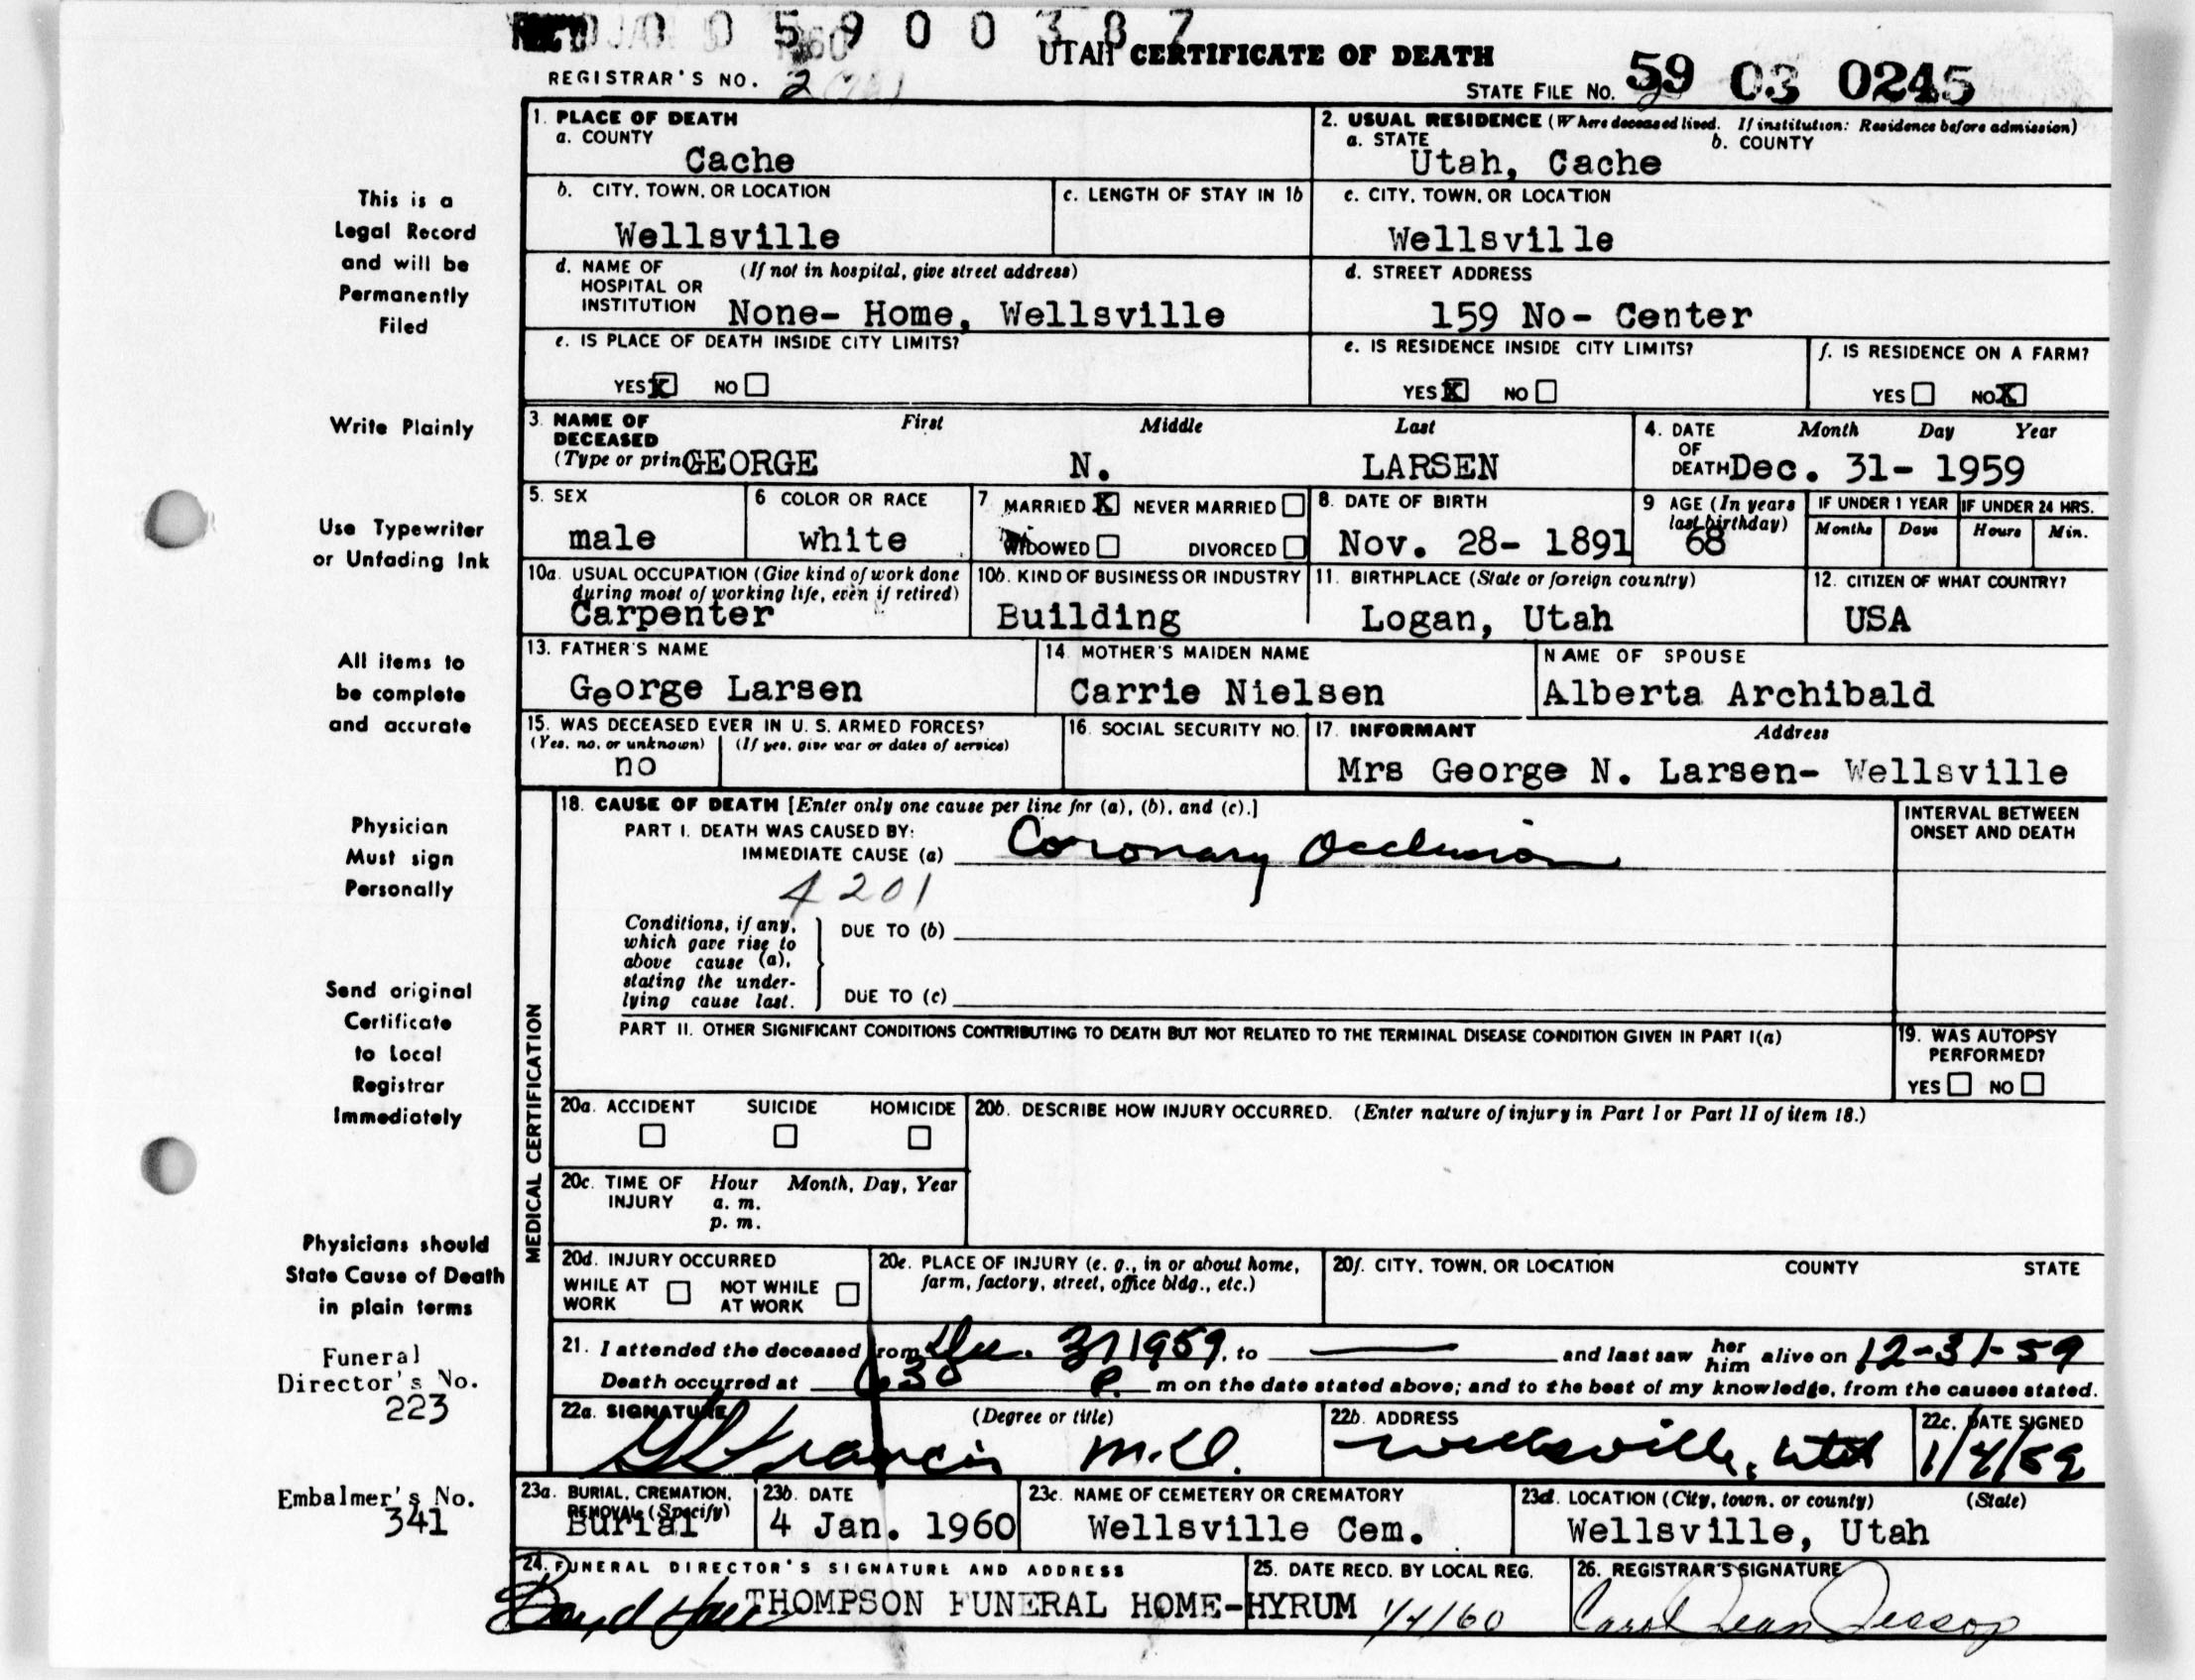 REC'D JAN
0 0 5 9 0 0 3 8 7
UTAH CERTIFICATE OF DEATH
REGISTRAR'S NO. 2
STATE FILE NO. 59 03 0245
1. PLACE OF DEATH
a. COUNTY
Cache
2. USUAL RESIDENCE (Where deceased lived. If institution: Residence before admission)
a. STATE b. COUNTY
Utah, Cache
b. CITY, TOWN, OR LOCATION
Wellsville
c. LENGTH OF STAY IN 1b
c. CITY, TOWN, OR LOCATION
Wellsville
d. NAME OF HOSPITAL OR INSTITUTION (If not in hospital, give street address)
None- Home, Wellsville
d. STREET ADDRESS
159 No- Center
e. IS PLACE OF DEATH INSIDE CITY LIMITS?
YES X NO
e. IS RESIDENCE INSIDE CITY LIMITS?
YES X NO
f. IS RESIDENCE ON A FARM?
YES NO X
3. NAME OF DECEASED (Type or print) First Middle Last
GEORGE N. LARSEN
4. DATE OF DEATH Month Day Year
Dec. 31- 1959
5. SEX
male
6 COLOR OR RACE
white
7 MARRIED X NEVER MARRIED
WIDOWED DIVORCED
8. DATE OF BIRTH
Nov. 28- 1891
9 AGE (In years last birthday)
68
IF UNDER 1 YEAR
Months Days
IF UNDER 24 HRS.
Hours Min.
10a. USUAL OCCUPATION (Give kind of work done during most of working life, even if retired)
Carpenter
10b. KIND OF BUSINESS OR INDUSTRY
Building
11. BIRTHPLACE (State or foreign country)
Logan, Utah
12. CITIZEN OF WHAT COUNTRY?
USA
13. FATHER'S NAME
George Larsen
14. MOTHER'S MAIDEN NAME
Carrie Nielsen
NAME OF SPOUSE
Alberta Archibald
15. WAS DECEASED EVER IN U. S. ARMED FORCES?
(Yes, no, or unknown) (If yes, give war or dates of service)
no
16. SOCIAL SECURITY NO.
17. INFORMANT Address
Mrs George N. Larsen- Wellsville
MEDICAL CERTIFICATION
18. CAUSE OF DEATH [Enter only one cause per line for (a), (b), and (c).]
PART I. DEATH WAS CAUSED BY:
IMMEDIATE CAUSE (a) Coronary Occlusion
4201
INTERVAL BETWEEN ONSET AND DEATH
Conditions, if any,
which gave rise to
above cause (a),
stating the under-
lying cause last.
DUE TO (b)
DUE TO (c)
PART II. OTHER SIGNIFICANT CONDITIONS CONTRIBUTING TO DEATH BUT NOT RELATED TO THE TERMINAL DISEASE CONDITION GIVEN IN PART I(a)
19. WAS AUTOPSY PERFORMED?
YES NO
20a. ACCIDENT SUICIDE HOMICIDE
20b. DESCRIBE HOW INJURY OCCURRED. (Enter nature of injury in Part I or Part II of item 18.)
20c. TIME OF INJURY Hour Month, Day, Year
a. m.
p. m.
20d. INJURY OCCURRED
WHILE AT WORK NOT WHILE AT WORK
20e. PLACE OF INJURY (e. g., in or about home, farm, factory, street, office bldg., etc.)
20f. CITY, TOWN, OR LOCATION COUNTY STATE
21. I attended the deceased from Dec. 31 1959, to — and last saw her him alive on 12-31-59
Death occurred at 630 P. m on the date stated above; and to the best of my knowledge, from the causes stated.
22a. SIGNATURE (Degree or title)
Francis M.D.
22b. ADDRESS
Wellsville, Utah
22c. DATE SIGNED
1/4/59
23a. BURIAL, CREMATION, REMOVAL (Specify)
Burial
23b. DATE
4 Jan. 1960
23c. NAME OF CEMETERY OR CREMATORY
Wellsville Cem.
23d. LOCATION (City, town, or county) (State)
Wellsville, Utah
24. FUNERAL DIRECTOR'S SIGNATURE AND ADDRESS
THOMPSON FUNERAL HOME-HYRUM
25. DATE RECD. BY LOCAL REG.
1/4/60
26. REGISTRAR'S SIGNATURE
Carol Dean Jessop
This is a
Legal Record
and will be
Permanently
Filed
Write Plainly
Use Typewriter
or Unfading Ink
All items to
be complete
and accurate
Physician
Must sign
Personally
Send original
Certificate
to Local
Registrar
Immediately
Physicians should
State Cause of Death
in plain terms
Funeral
Director's No.
223
Embalmer's No.
341